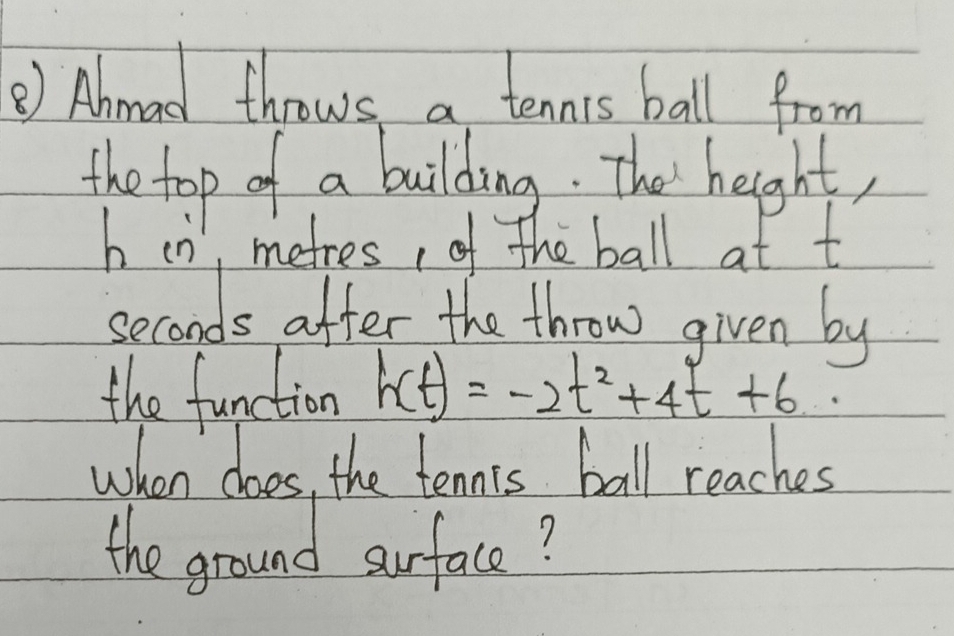 8) Ahmad throws a tennis ball from
the top of a building. The height,
h in, metres, of The ball at t
seconds after the throw given by
the function h(t) = -2t² + 4t + 6.
When does, the tennis ball reaches
the ground surface?